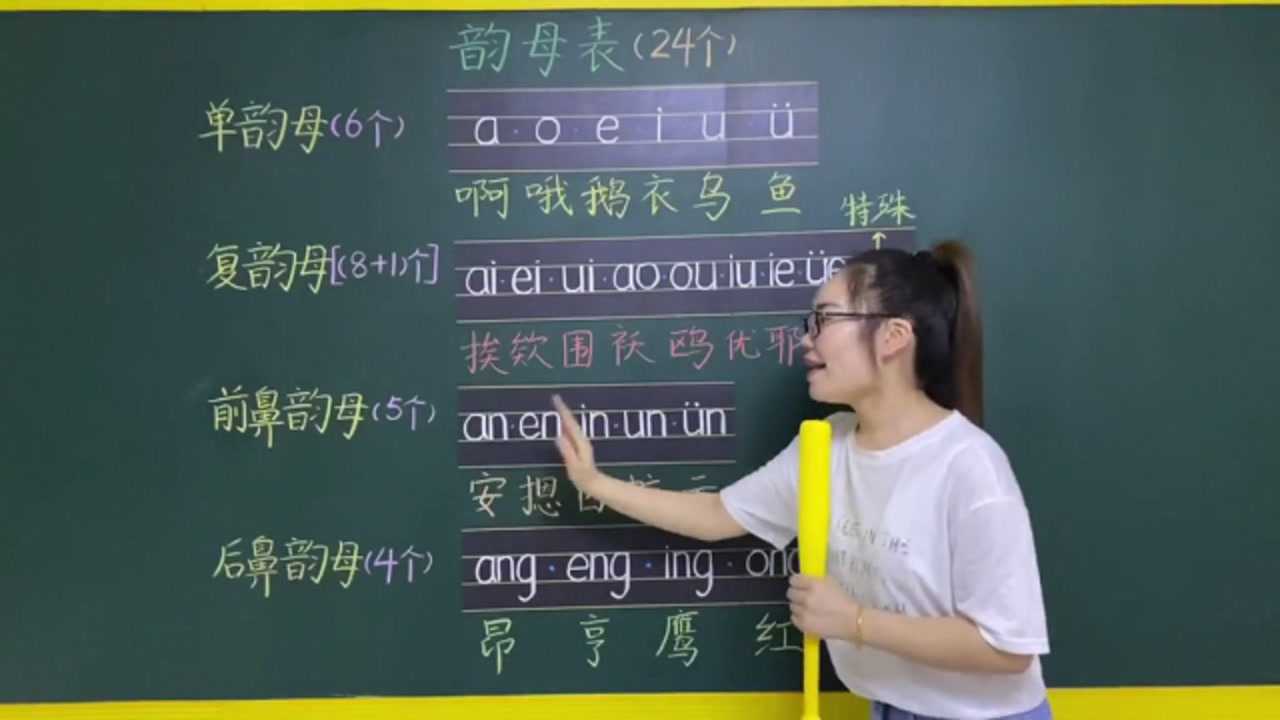 韵母表(24个)
单韵母(6个) a·o·e·i·u·ü
啊哦鹅衣乌鱼
特殊
复韵母[(8+1)个] ai·ei·ui·ao·ou·iu·ie·üe
挨欸围袄鸥优耶
前鼻韵母(5个) an·en·in·un·ün
安摁
后鼻韵母(4个) ang·eng·ing·
昂亨鹰红